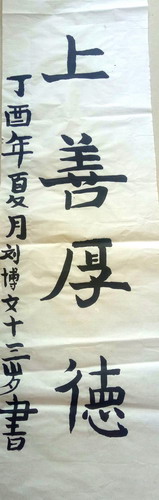 上善厚德
丁酉年夏月刘博文十二岁書